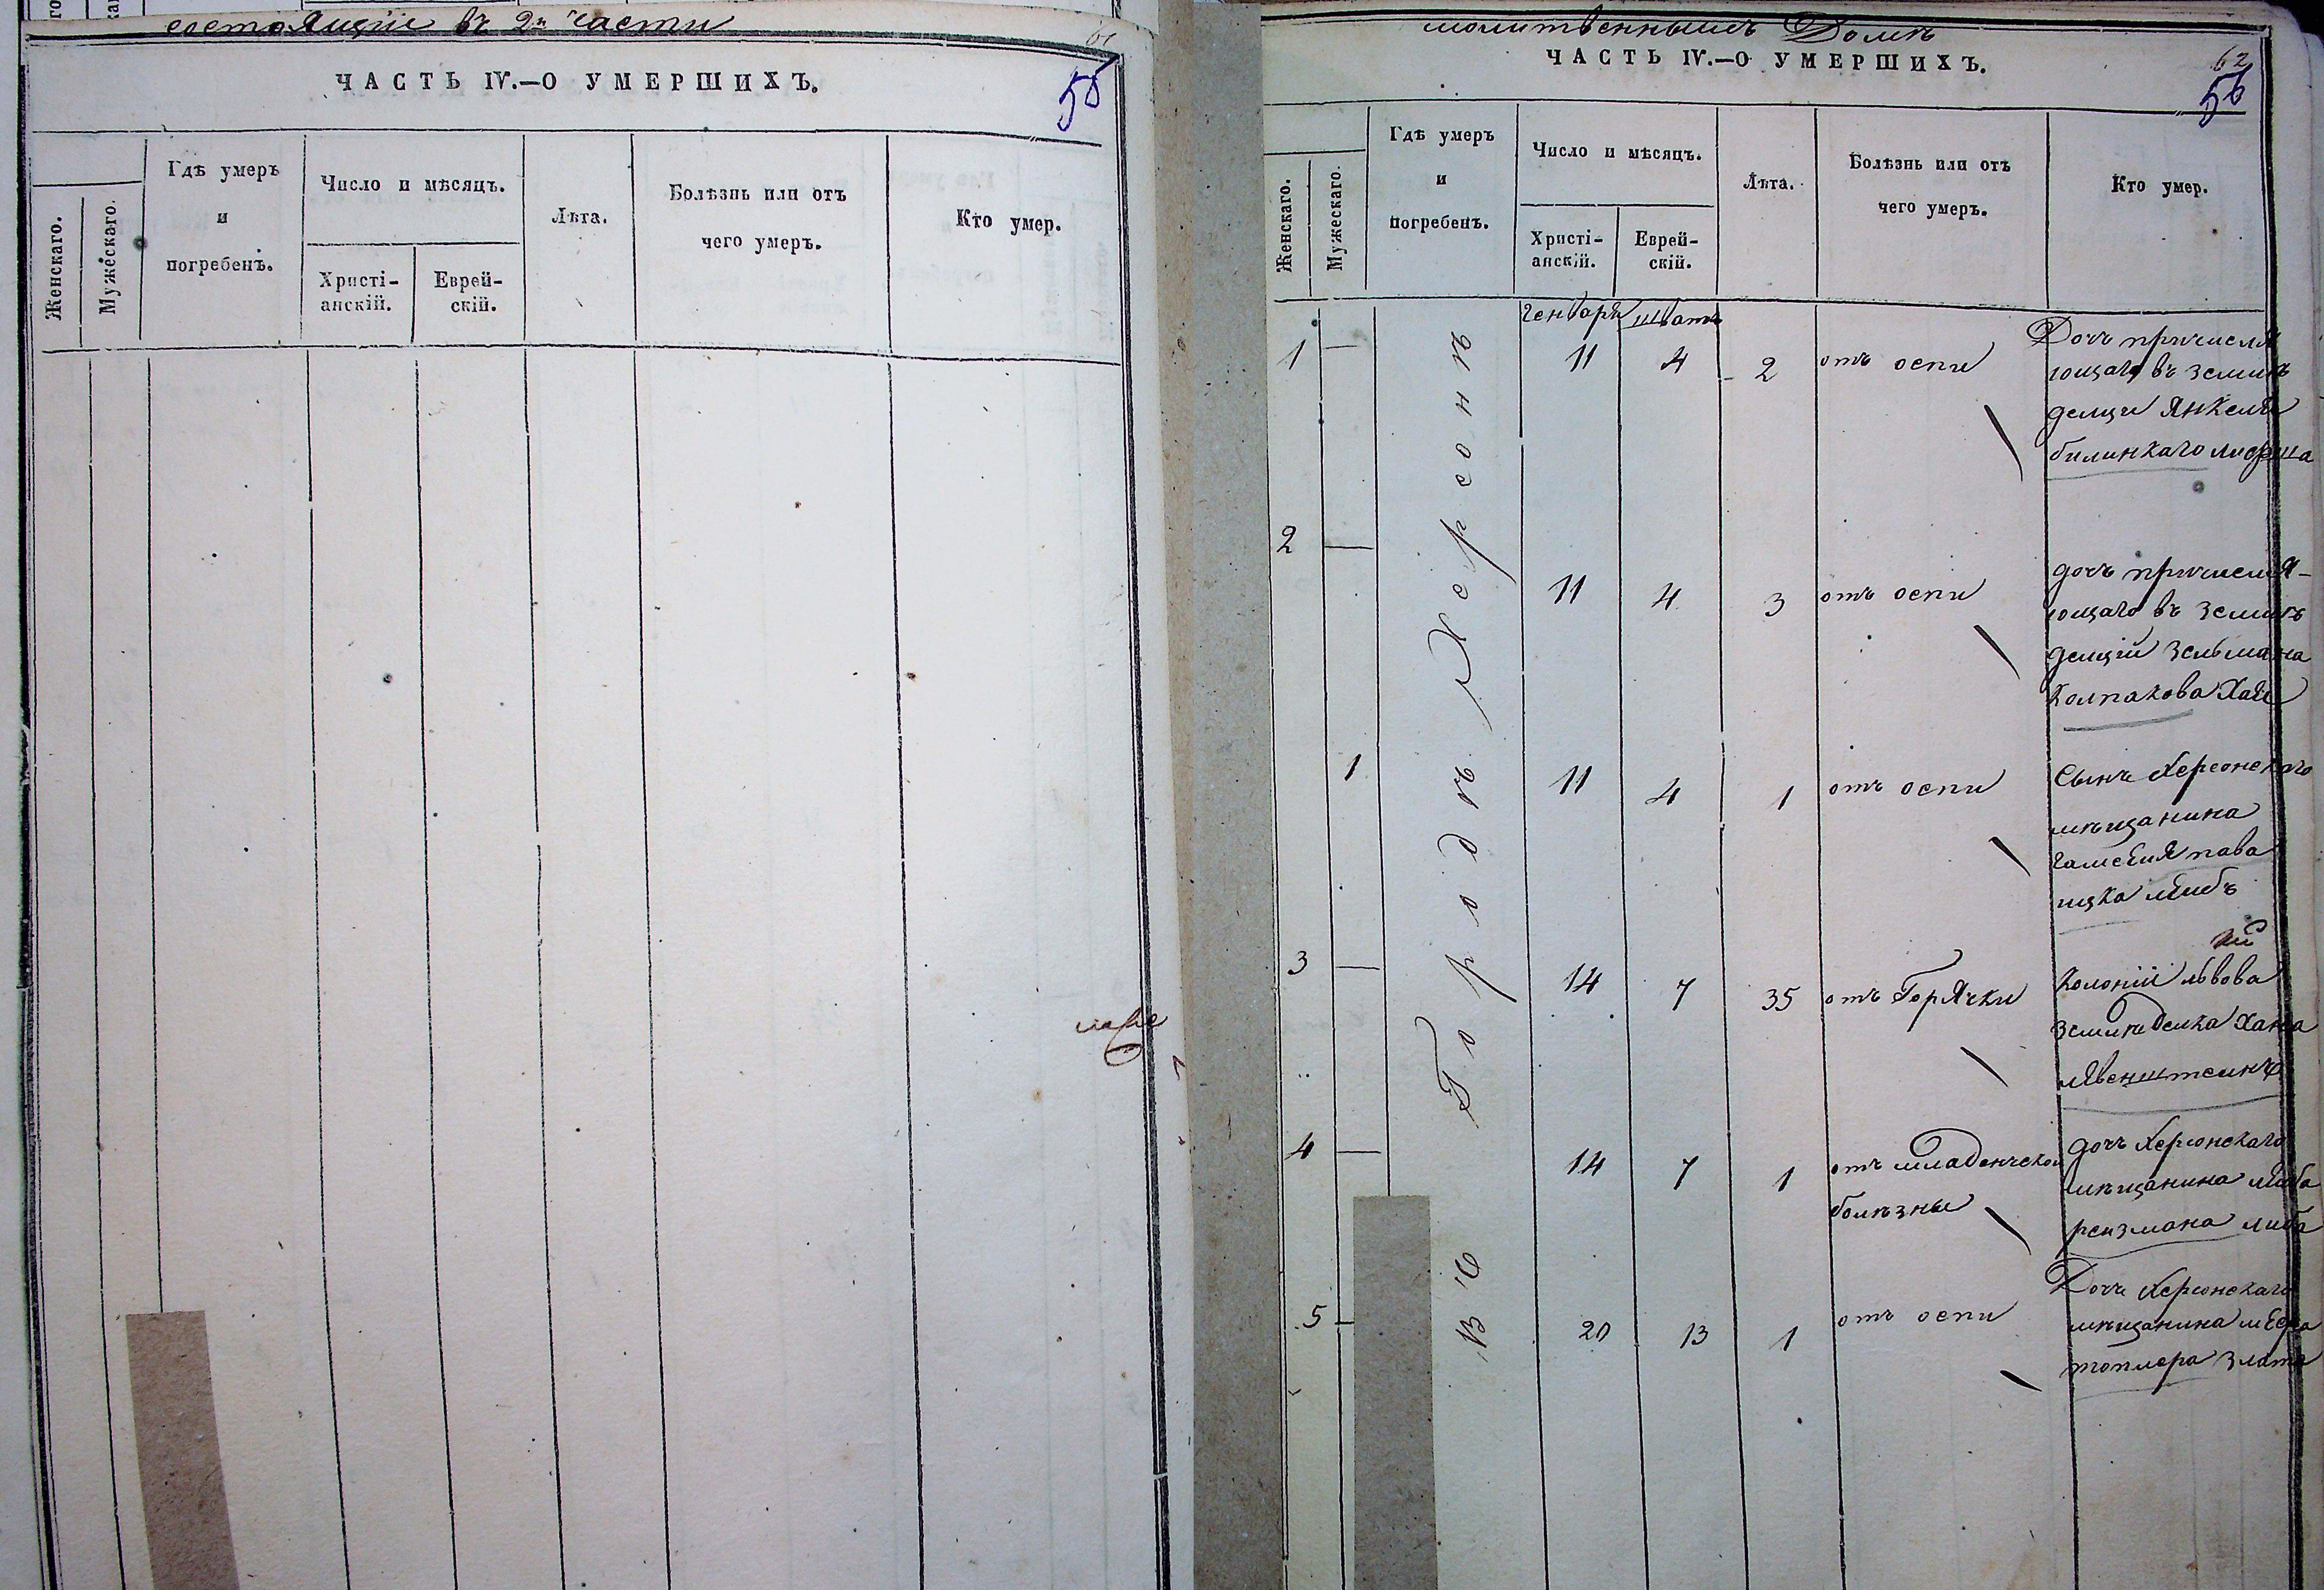 состоящіе въ 2й части
61
ЧАСТЬ IV.—О УМЕРШИХЪ.
55
Женскаго.
Мужескаго.
Гдѣ умеръ
и
погребенъ.
Число и мѣсяцъ.
Христі-
анскій.
Еврей-
скій.
Лѣта.
Болѣзнь или отъ
чего умеръ.
Кто умер.
молитвеннымъ Домѣ
ЧАСТЬ IV.—О УМЕРШИХЪ.
62
56
Женскаго.
Мужескаго.
Гдѣ умеръ
и
погребенъ.
Число и мѣсяцъ.
Христі-
анскій.
Еврей-
скій.
Лѣта.
Болѣзнь или отъ
чего умеръ.
Кто умер.
Генваря Шватъ
В Городѣ Херсонѣ
1 — 11 4 2 отъ оспи
Дочъ причисля
ющаго въ земле
делци Янкеля
билинкаго
2 — 11 4 3 отъ оспи
дочъ причисля-
ющаго въ земле
делцій Зельмана
Колпакова Хая
1 11 4 1 отъ оспи
Сынъ Херсонскаго
мѣщанина
пава
ицка Лейбъ
3 — 14 7 35 отъ Горячки
Колоніи львова
Хана
4 — 14 7 1 отъ младенческой
болѣзны
дочъ Херсонскаго
мѣщанина Лейба
рейзмана либа
5 — 20 13 1 отъ оспи
Дочъ Херсонскаго
мѣщанина
топлера Злата